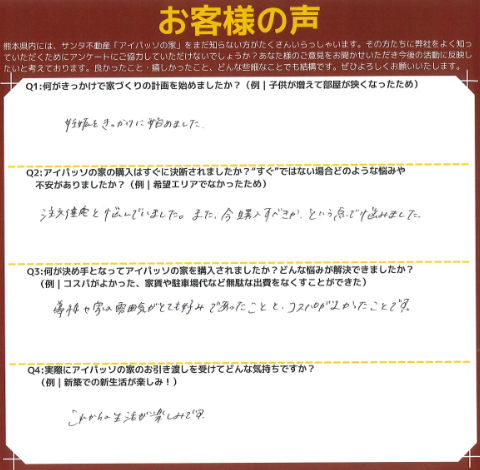 お客様の声
熊本県内には、サンタ不動産「アイパッソの家」をまだ知らない方がたくさんいらっしゃいます。その方たちに弊社をよく知っ
ていただくためにアンケートにご協力していただけないでしょうか?あなた様のご意見をお聞かせいただき今後の活動に反映し
たいと考えております。良かったこと・嬉しかったこと、どんな些細なことでも結構です。ぜひよろしくお願いいたします。
Q1:何がきっかけで家づくりの計画を始めましたか?(例|子供が増えて部屋が狭くなったため)
妊娠をきっかけに始めました。
Q2:アイパッソの家の購入はすぐに決断されましたか?"すぐ"ではない場合どのような悩みや
不安がありましたか?(例|希望エリアでなかったため)
注文住宅と悩んでいました。また、今購入すべきか、という点で悩みました。
Q3:何が決め手となってアイパッソの家を購入されましたか?どんな悩みが解決できましたか?
(例|コスパがよかった、家賃や駐車場代など無駄な出費をなくすことができた)
外構や家の雰囲気がとても好みであったことと、コスパがよかったことです。
Q4:実際にアイパッソの家のお引き渡しを受けてどんな気持ちですか?
(例|新築での新生活が楽しみ!)
これからの生活が楽しみです。